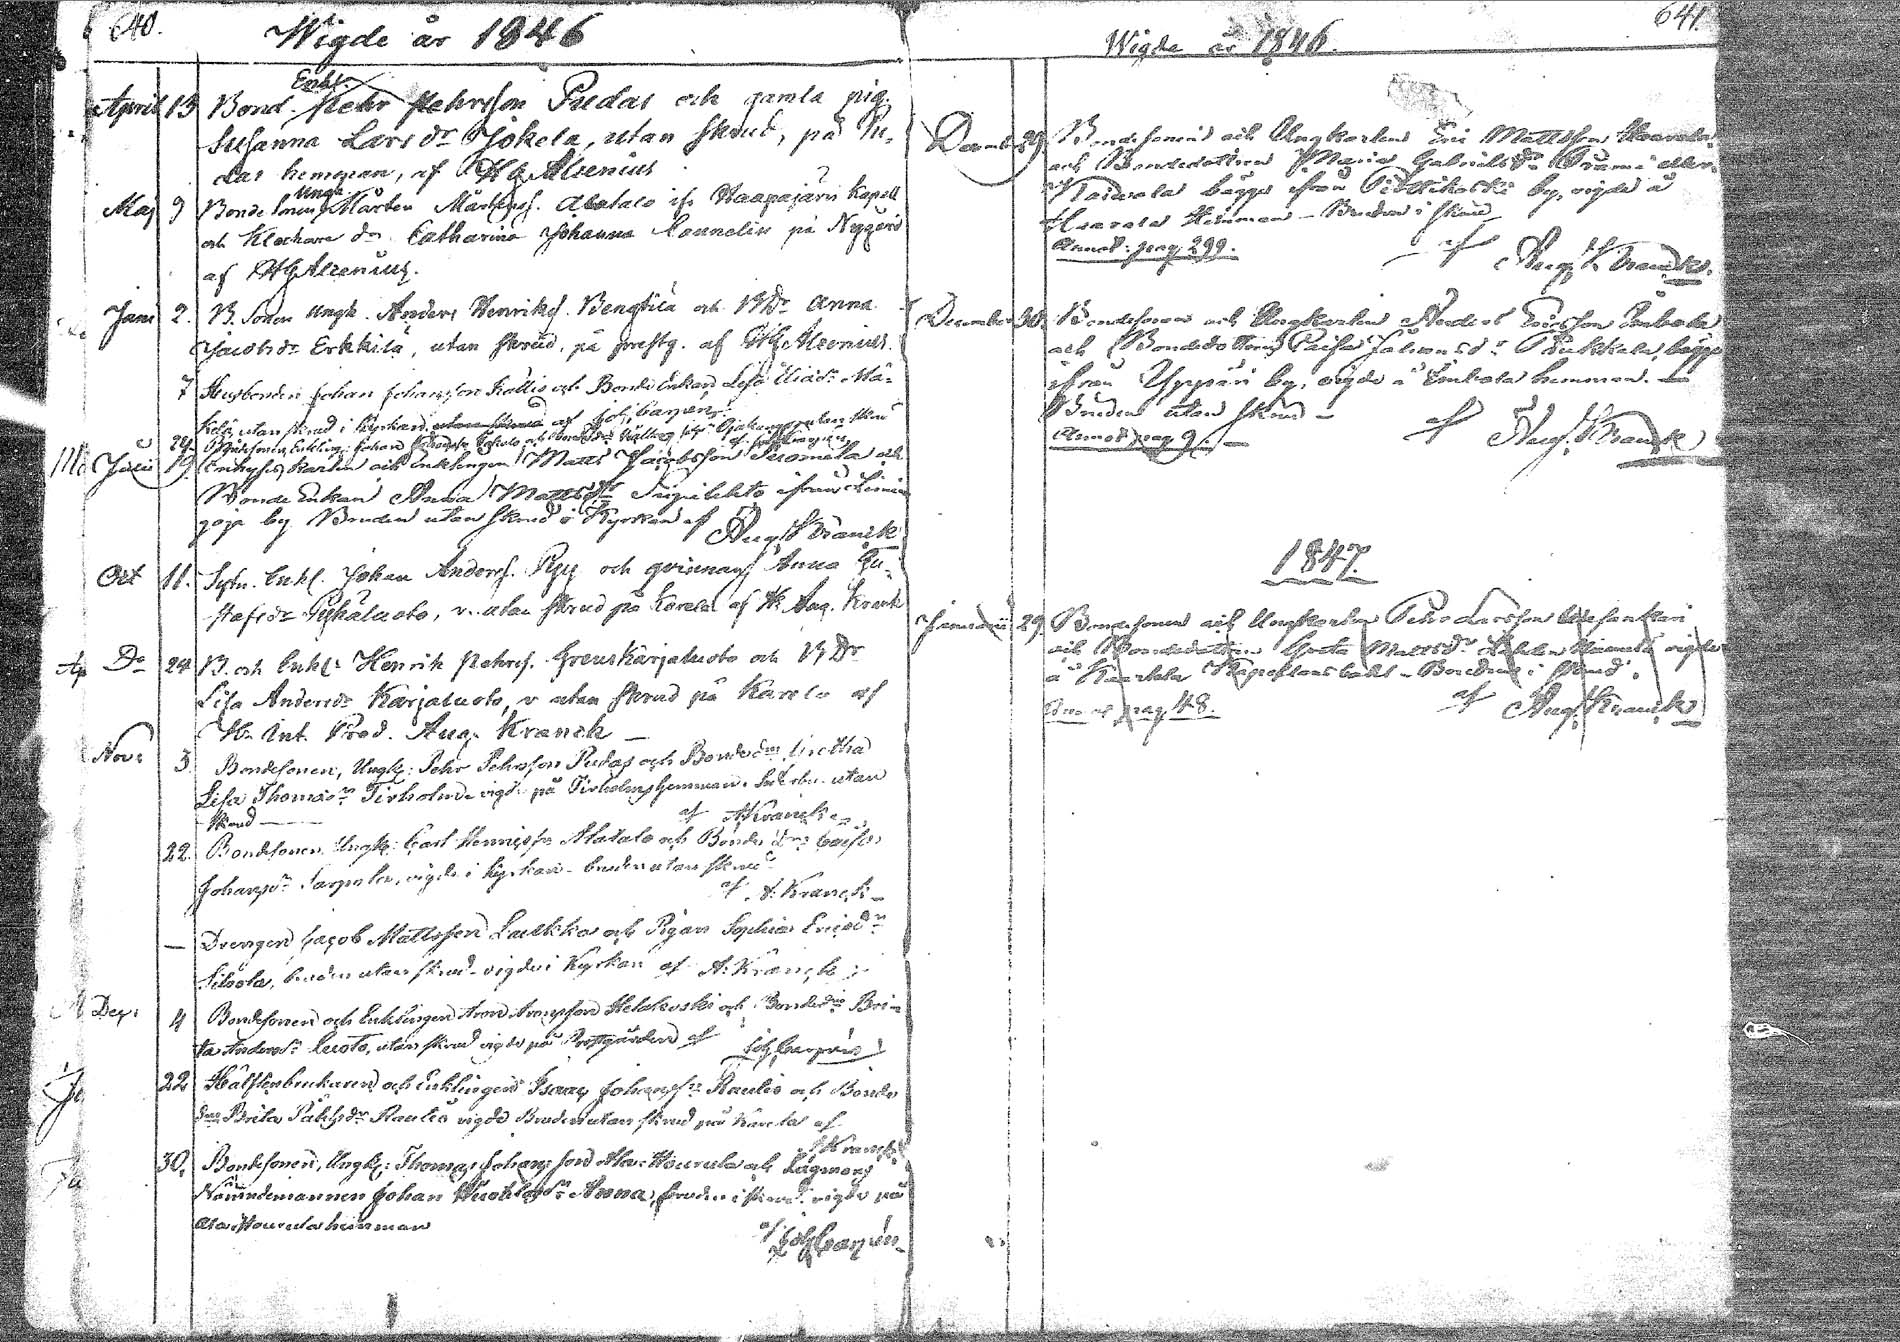 640.
Wigde år 1846
Enkl.
April 13 Bond. Pehr Pehrsson Pudas och gamla pig.
Susanna Lars dr Jokela, utan skrud, på Pu-
das hemman, af HG Alcenius
Ungk
Maj 9 Bonde Sonen Mårten Mårtenss. Alatalo ifr. Haapajärvi Kapell
och Klockare dr Catharina Johanna Connelin på Nygård
af HG Alcenius.
Juni 2. B. Sonen Ungk. Anders Henrikss. Bengtilä och B Dr Anna
Jacobs dr Erkkilä, utan skrud, på prestg. af HG Alcenius.
7 Husbonden Johan Johansson Kallio och Bonde Enkan Lisa Eliædr Mä-
kelä utan skrud i Kyrkan utan skrud af Joh. Carpén
24.
Julii 19. Inhyses karlen och Enklingen Matts Jacobsson och
Bonde Enkan Anna Matts dr ifrån Limin
goja by Bruden utan skrud i Kyrkan af Aug. Kranck
Oct 11. Sytn. Enkl. Johan Anderss. Pyy och qvinnan Anna Gu-
stafs dr Pitkäluoto, v. utan skrud på Karela af H. Aug. Kranck
Do 24 B. och Enkl: Henrik Pehrss. Greus Karjaluoto och B Dr
Lisa Anders dr Karjaluoto, v utan skrud på Karela af
Hr Int. Pred. Aug. Kranck
Nov: 3 Bondesonen, Ungk: Pehr Pehrsson Pudas och Bonde dr Gretha
Lisa Thomæ dr Tirholm vigde på Tirholms hemman. utan
skrud af A Kranck
22. Bondesonen Ungk: Carl Henricss. Alatalo och Bonde dr Caisa
Johans dr Sarpola, vigde i Kyrkan - bruden utan skrud
af A. Kranck
— Drengen Jacob Mattsson Laukka och Pigan Sophia Erics dr
Siliola, bruden utan skrud - vigde i Kyrkan af A. Kranck
Dec: 4 Bondesonen och Enklingen Aron Aronsson Helakoski och Bonde dr Bri-
ta Anders dr Luoto, utan skrud vigde på Prestgården af Joh. Carpén
22 Hälftenbrukaren och Enklingen Isaac Johanss. Rautio och Bonde
dr Brita Påhls dr Rautio vigde Bruden utan skrud på Karela af
A Kranck
30. Bondesonen, Ungk: Thomas Johansson Ala-Houvula och Lagmans
Nämndemannen Johan dr Anna, bruden i skrud vigde på
Ala Houvula hemman af
Joh Carpén
641.
Wigde år 1846.
December 29 Bondesonen och Ungkarlen Eric Mattsson Haarala
och Bondedottren Maria Gabriels dr Prami eller
Kaiwola begge ifrån Piehikoski by, vigde å
Haarala Hemman - Bruden i skrud
Annot: pag. 299. af Aug. Kranck.
December 30. Bondesonen och Ungkarlen Anders Ericsson Imbola
och Bondedottren Caisa Salomons dr Pukkala, begge
ifrån Yppäri by, vigde å Imbola hemman. —
Bruden utan skrud -
Annot: pag 9. — af Aug. Kranck
1847.
Januarii 29. Bondesonen och Ungkarlen Pehr Larsson
och Bondedottren Greta Matts dr vigde
å Kaarlela Kapellansbohl - Bruden i skrud.
Annot pag 48. af Aug. Kranck